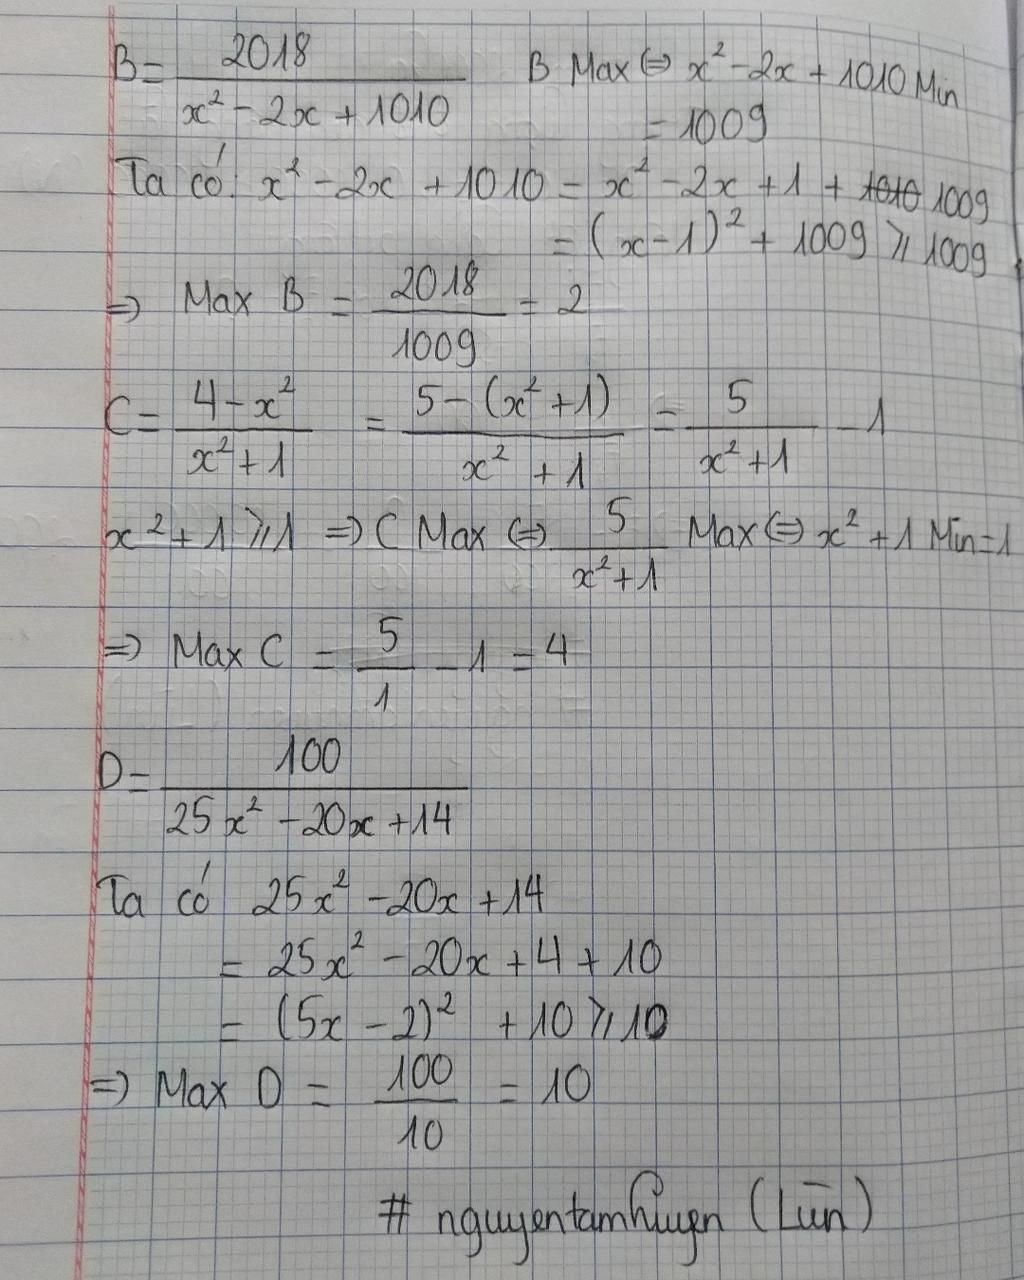 B = 2018 / (x² - 2x + 1010) B Max ⇔ x² - 2x + 1010 Min
= 1009
Ta có: x² - 2x + 1010 = x² - 2x + 1 + ~~1010~~ 1009
= (x - 1)² + 1009 ⩾ 1009
⇒ Max B = 2018 / 1009 = 2
C = (4 - x²) / (x² + 1) = (5 - (x² + 1)) / (x² + 1) = 5 / (x² + 1) - 1
x² + 1 ⩾ 1 ⇒ C Max ⇔ 5 / (x² + 1) Max ⇔ x² + 1 Min = 1
⇒ Max C = 5 / 1 - 1 = 4
D = 100 / (25x² - 20x + 14)
Ta có 25x² - 20x + 14
= 25x² - 20x + 4 + 10
= (5x - 2)² + 10 ⩾ 10
⇒ Max D = 100 / 10 = 10
# nguyentamhuyen (Lùn)